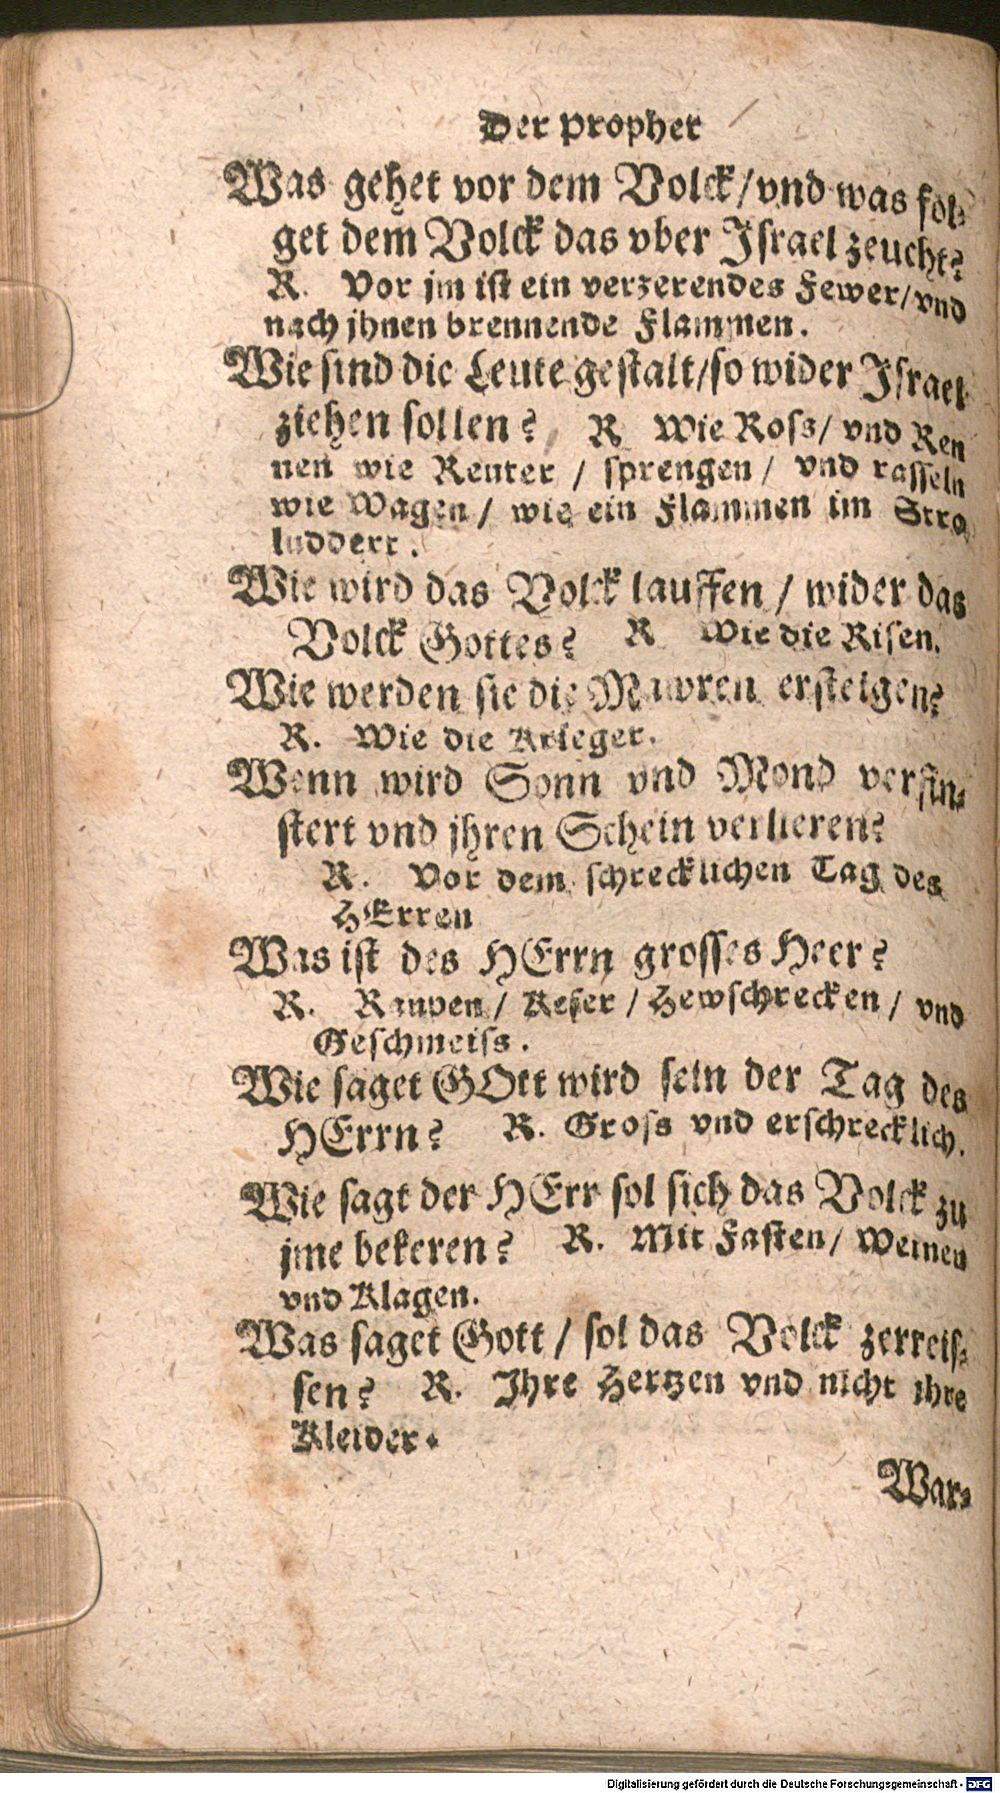 Der Prophet
Was gehet vor dem Volck/vnd was fol⸗
get dem Volck das vber Israel zeucht?
R. Vor jm ist ein verzerendes Fewer/vnd
nach jhnen brennende Flammen.
Wie sind die Leute gestalt/so wider Israel
ziehen sollen? R. Wie Ross/ vnd Ren
nen wie Reuter / sprengen / vnd rasseln
wie Wagen / wie ein Flammen im Stro
luddert.
Wie wird das Volck lauffen / wider das
Volck Gottes? R. Wie die Risen.
Wie werden sie die Mawren ersteigen?
R. Wie die Krieger.
Wenn wird Sonn vnd Mond verfin⸗
stert vnd jhren Schein verlieren?
R. Vor dem schrecklichen Tag des
HErren
Was ist des HErrn grosses Heer?
R. Raupen / Kefer / Hewschrecken / vnd
Geschmeiss.
Wie saget GOtt wird sein der Tag des
HErrn? R. Gross vnd erschrecklich.
Wie sagt der HErr sol sich das Volck zu
jme bekeren? R. Mit Fasten/ Weinen
vnd Klagen.
Was saget Gott / sol das Volck zerreis⸗
sen? R. Ihre Hertzen vnd nicht ihre
Kleider.
War⸗
Digitalisierung gefördert durch die Deutsche Forschungsgemeinschaft - DFG